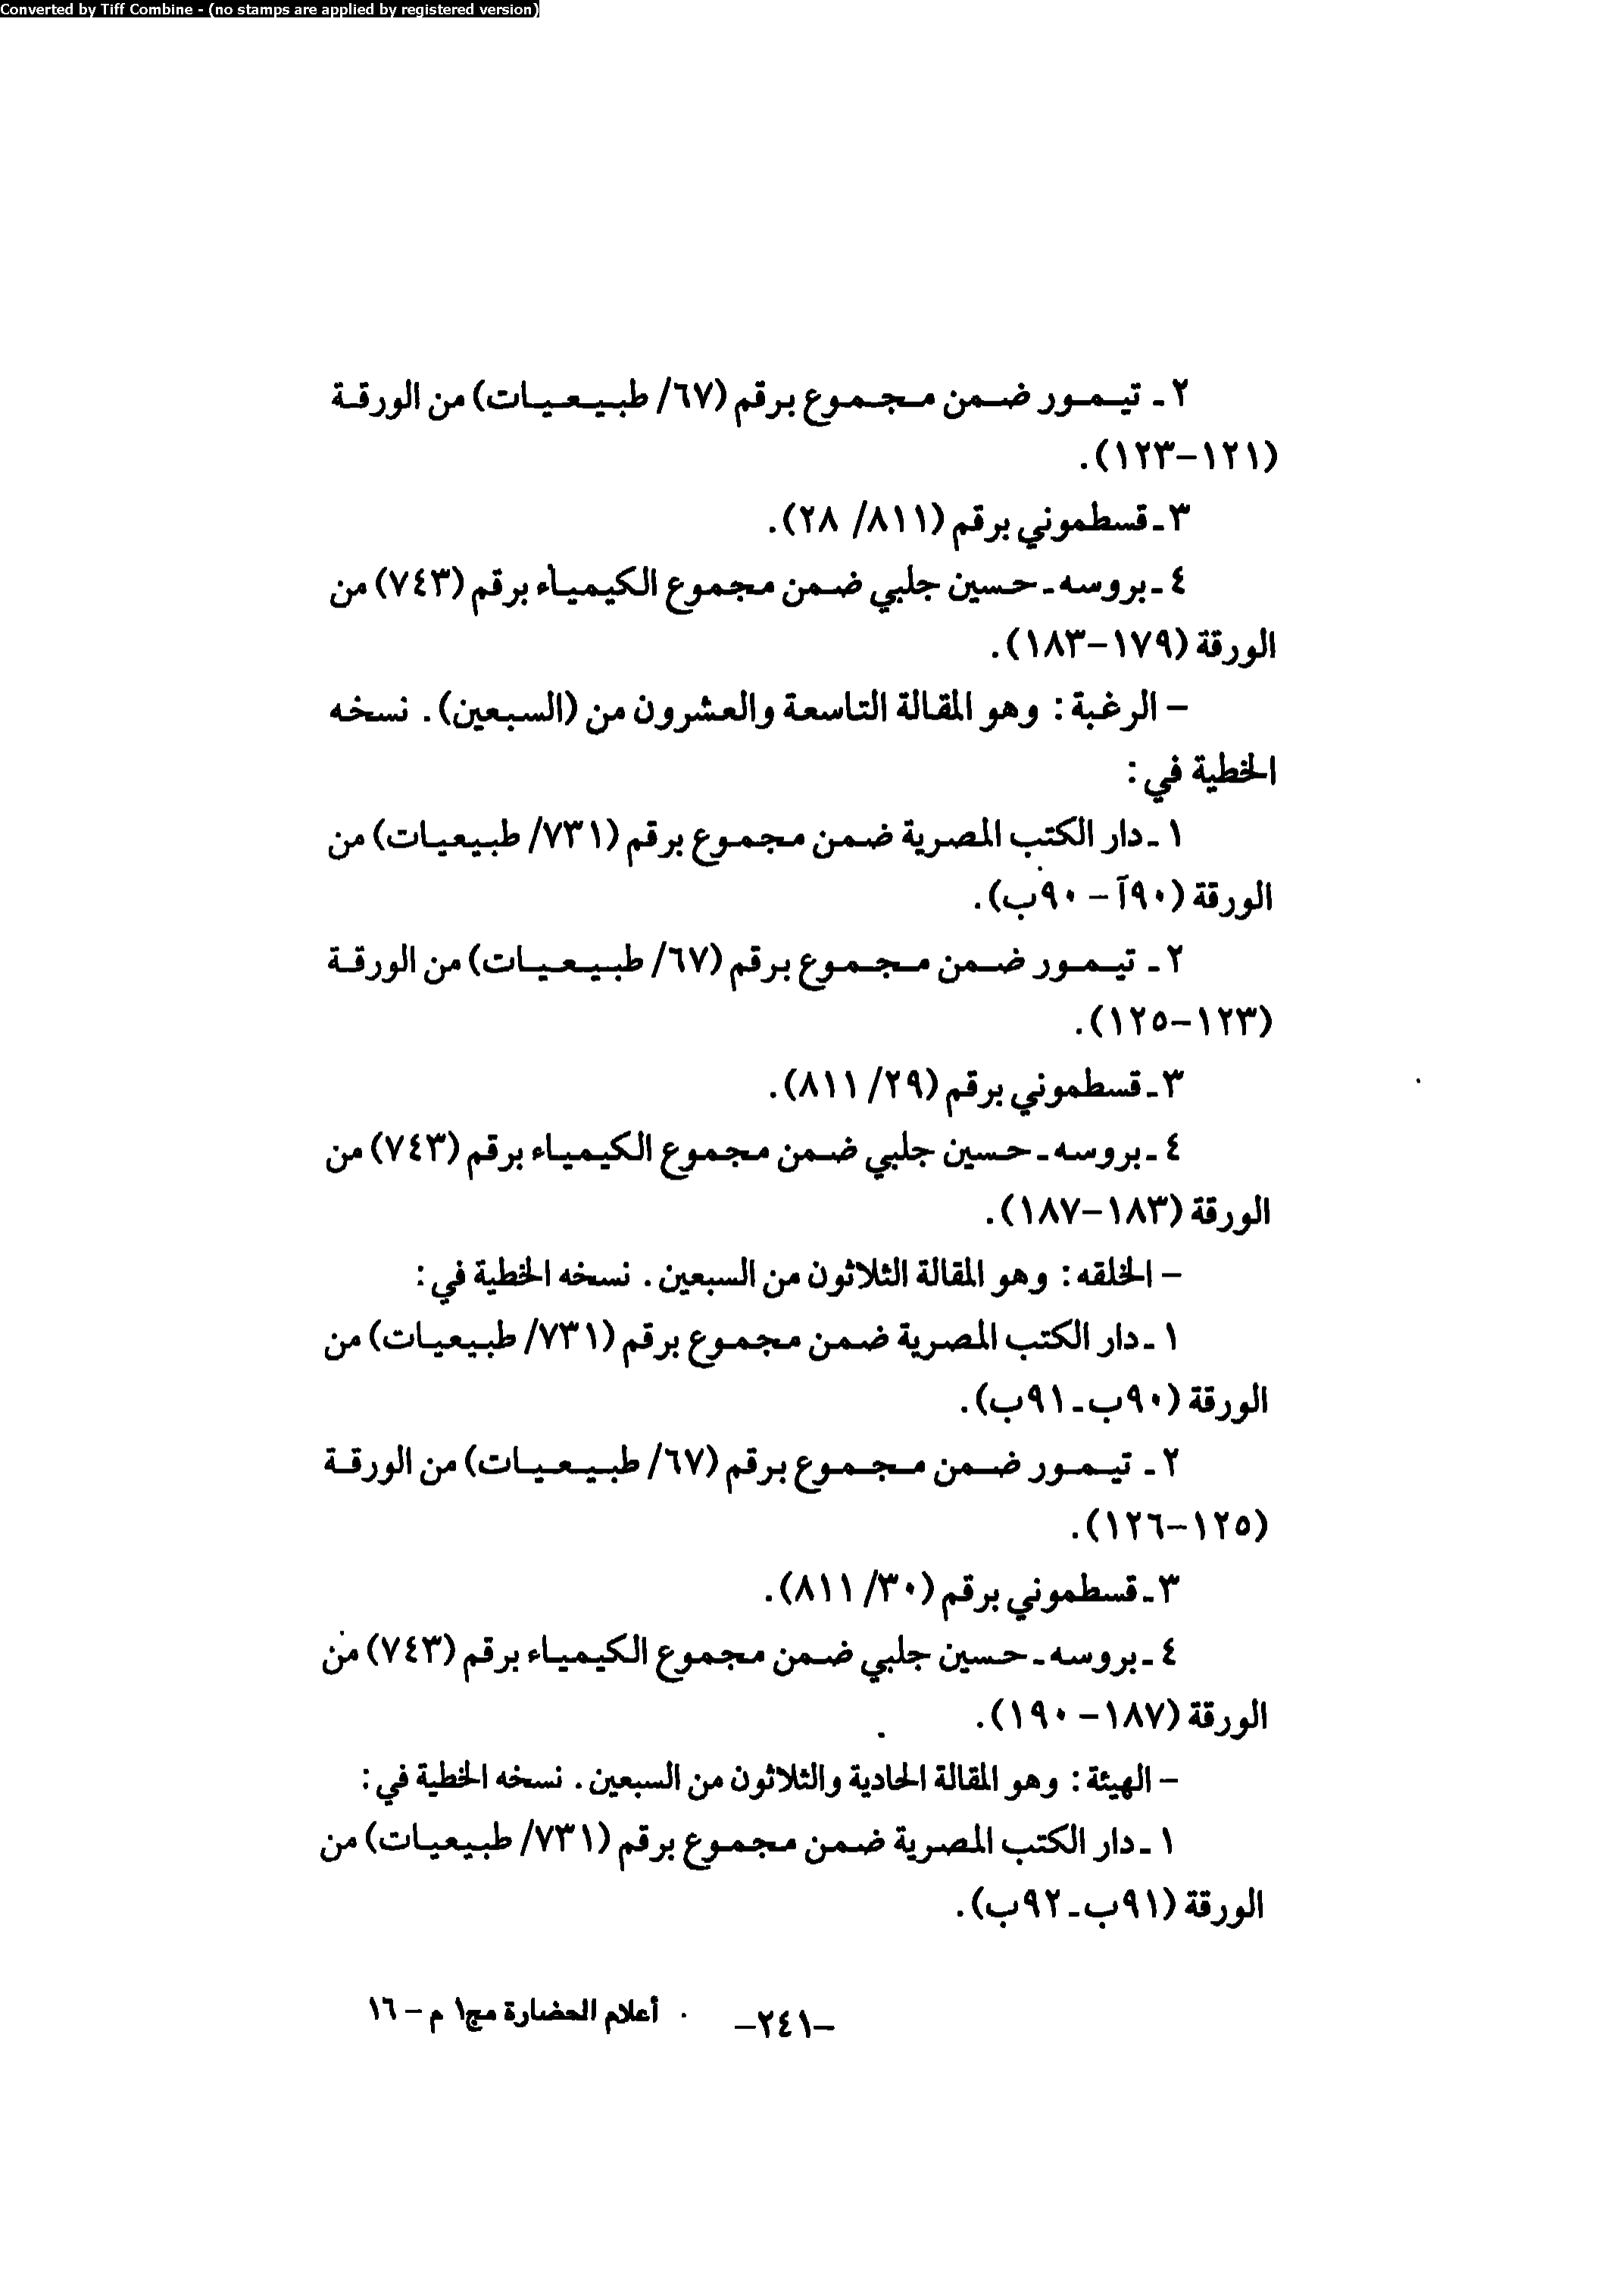 Converted by Tiff Combine - (no stamps are applied by registered version)
٢ ـ تيمور ضمن مجموع برقم (٦٧/ طبيعيات) من الورقة
(١٢١-١٢٣).
٣ ـ قسطموني برقم (٨١١/ ٢٨).
٤ ـ بروسه ـ حسين جلبي ضمن مجموع الكيمياء برقم (٧٤٣) من
الورقة (١٧٩-١٨٣).
- الرغبة: وهو المقالة التاسعة والعشرون من (السبعين). نسخه
الخطية في:
١ ـ دار الكتب المصرية ضمن مجموع برقم (٧٣١/ طبيعيات) من
الورقة (٩٠آ - ٩٠ب).
٢ ـ تيمور ضمن مجموع برقم (٦٧/ طبيعيات) من الورقة
(١٢٣-١٢٥).
٣ ـ قسطموني برقم (٢٩/ ٨١١).
٤ ـ بروسه ـ حسين جلبي ضمن مجموع الكيمياء برقم (٧٤٣) من
الورقة (١٨٣-١٨٧).
- الخلقه: وهو المقالة الثلاثون من السبعين. نسخه الخطية في:
١ ـ دار الكتب المصرية ضمن مجموع برقم (٧٣١/ طبيعيات) من
الورقة (٩٠ب ـ ٩١ب).
٢ ـ تيمور ضمن مجموع برقم (٦٧/ طبيعيات) من الورقة
(١٢٥-١٢٦).
٣ ـ قسطموني برقم (٣٠/ ٨١١).
٤ ـ بروسه ـ حسين جلبي ضمن مجموع الكيمياء برقم (٧٤٣) من
الورقة (١٨٧- ١٩٠).
- الهيئة: وهو المقالة الحادية والثلاثون من السبعين. نسخه الخطية في:
١ ـ دار الكتب المصرية ضمن مجموع برقم (٧٣١/ طبيعيات) من
الورقة (٩١ب ـ ٩٢ب).
-٢٤١- أعلام الحضارة مج١ م - ١٦